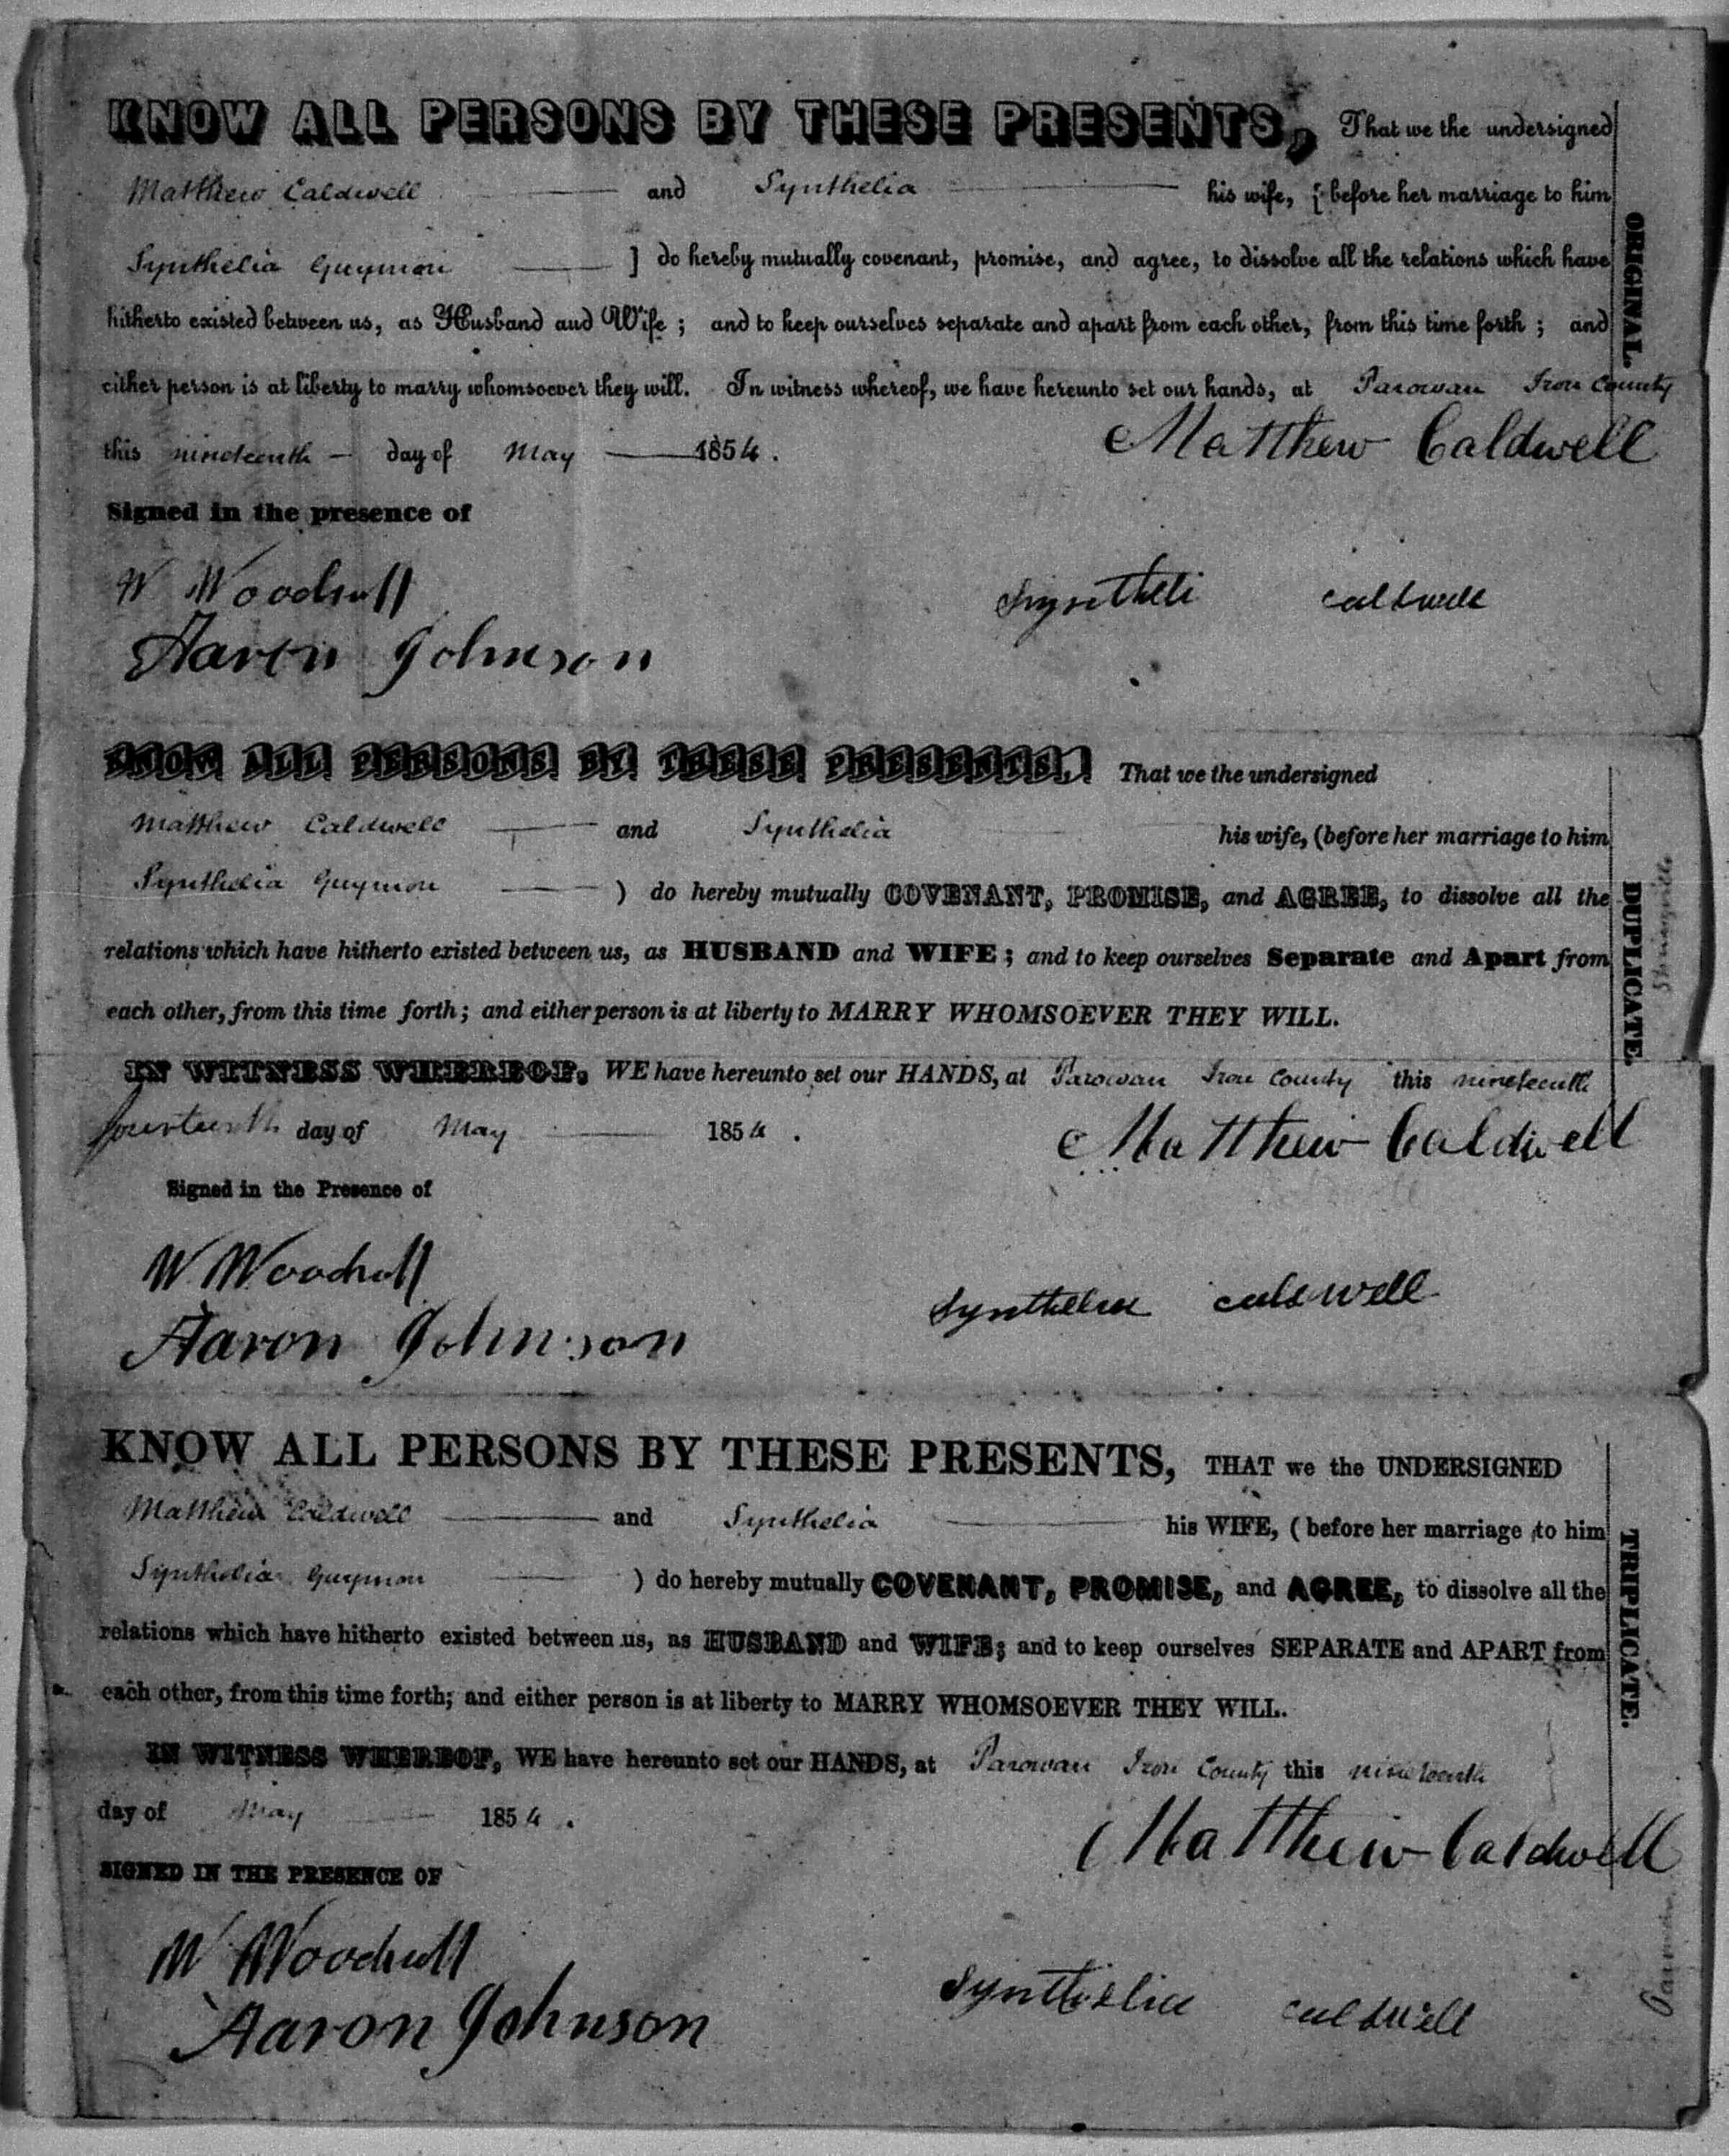 KNOW ALL PERSONS BY THESE PRESENTS, That we the undersigned
Matthew Caldwell and Synthelia his wife, [before her marriage to him
Synthelia Guymon ] do hereby mutually covenant, promise, and agree, to dissolve all the relations which have
hitherto existed between us, as Husband and Wife; and to keep ourselves separate and apart from each other, from this time forth; and
either person is at liberty to marry whomsoever they will. In witness whereof, we have hereunto set our hands, at Parowan Iron County
this nineteenth — day of May 1854.
Matthew Caldwell
Signed in the presence of
W Woodruff
Syntheli caldwell
Aaron Johnson
ORIGINAL.
KNOW ALL PERSONS BY THESE PRESENTS, That we the undersigned
Matthew Caldwell and Synthelia his wife, (before her marriage to him
Synthelia Guymon ) do hereby mutually COVENANT, PROMISE, and AGREE, to dissolve all the
relations which have hitherto existed between us, as HUSBAND and WIFE; and to keep ourselves Separate and Apart from
each other, from this time forth; and either person is at liberty to MARRY WHOMSOEVER THEY WILL.
IN WITNESS WHEREOF, WE have hereunto set our HANDS, at Parowan Iron County this nineteenth
fourteenth day of May 1854.
Matthew Caldwell
Signed in the Presence of
W Woodruff
Synthelia caldwell
Aaron Johnson
DUPLICATE.
KNOW ALL PERSONS BY THESE PRESENTS, THAT we the UNDERSIGNED
Matthew Caldwell and Synthelia his WIFE, (before her marriage to him
Synthelia Guymon ) do hereby mutually COVENANT, PROMISE, and AGREE, to dissolve all the
relations which have hitherto existed between us, as HUSBAND and WIFE; and to keep ourselves SEPARATE and APART from
each other, from this time forth; and either person is at liberty to MARRY WHOMSOEVER THEY WILL.
IN WITNESS WHEREOF, WE have hereunto set our HANDS, at Parowan Iron County this nineteenth
day of May 1854.
Matthew Caldwell
SIGNED IN THE PRESENCE OF
W Woodruff
Synthelia caldwell
Aaron Johnson
TRIPLICATE.